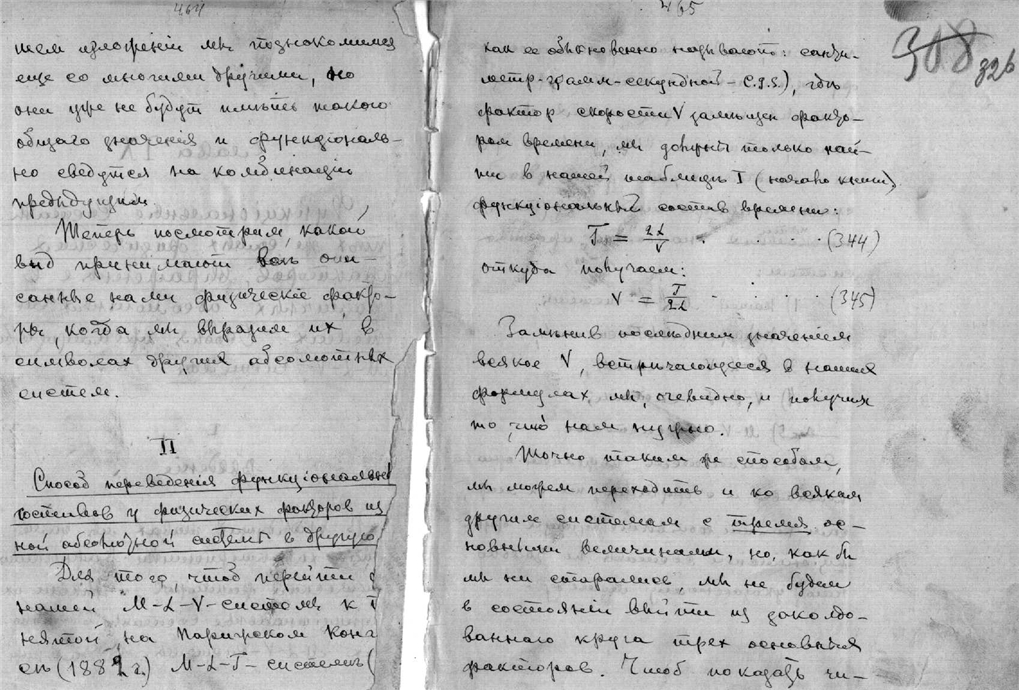 464
шем изложеніи мы познакомимся
еще со многими другими, но
они уже не будут имѣть такого
общаго значенія и функціональ-
но сведутся на комбинаціи
предыдущих.
Теперь посмотрим, какой
вид принимают всѣ опи-
санные нами физическіе факто-
ры, когда мы выразим их в
символах других абсолютных
систем.
II
Способ переведенія функціональных
составов у физических факторов из
ной абсолютной системы в другую
Для того, чтоб перейти
нашей M-L-V-системы к
нятой на Парижском Конг-
сѣ (1882 г) M-L-T-системы (
465
308
326
как ее обыкновенно называют: санти-
метр-грамм-секундной - C.G.S.), гдѣ
фактор скорости V замѣщен факто-
ром времени, мы должны только най-
ти в нашей таблицѣ I (начало книги)
функціональный состав времени:
T = 2L/V . . . . (344)
откуда получаем:
V = T/2L . . . . (345)
Замѣнив послѣдним значеніем
всякое V, встрѣчающееся в наших
формулах, мы, очевидно, и получим
то, что нам нужно.
Точно таким же способом,
мы можем переходить и ко всяким
другим системам с тремя ос-
новными величинами, но, как бы
мы ни старались, мы не будем
в состояніи выйти из заколдо-
ваннаго круга трех основных
факторов. Чтоб показать чи-